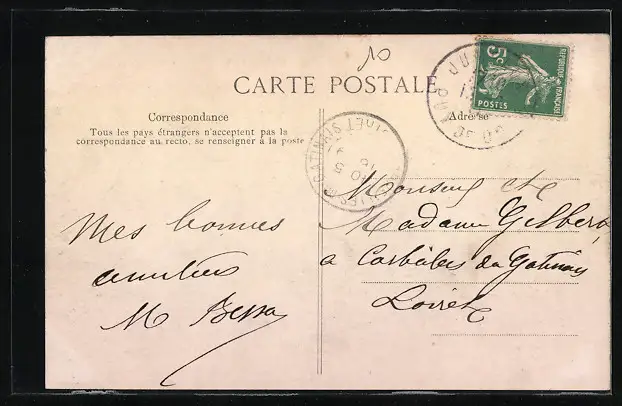 10
CARTE POSTALE
Correspondance
Tous les pays étrangers n'acceptent pas la
correspondance au recto, se renseigner à la poste
Adresse
5c
REPUBLIQUE FRANÇAISE
POSTES
GATINAIS
Monsieur et
Madame Gilbert
a Corbeilles du Gatinais
Loiret
Mes bonnes
amitiés
M Bessa